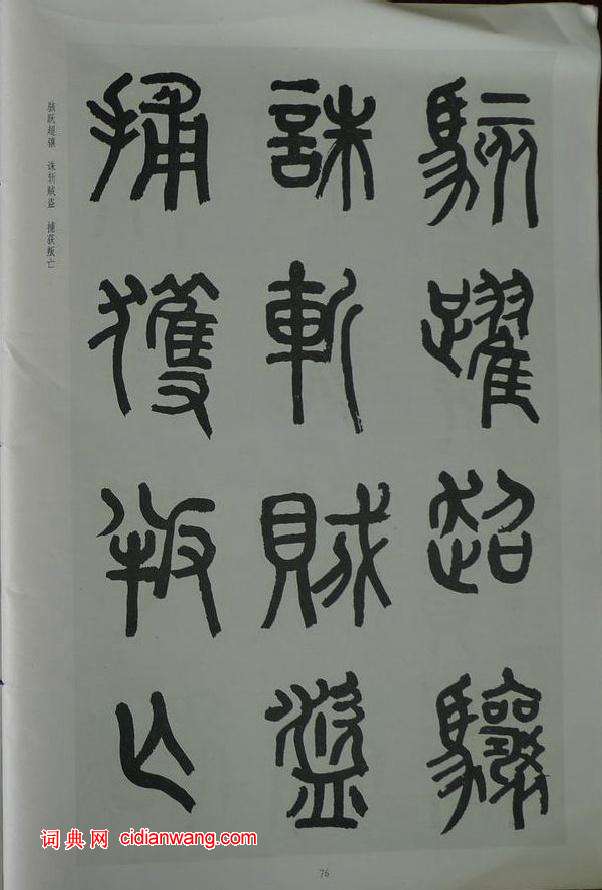 駭躍超驤
誅斬賊盜
捕獲叛亡
骇跃超骧 诛斩贼盗 捕获叛亡
词典网 cidianwang.com
76